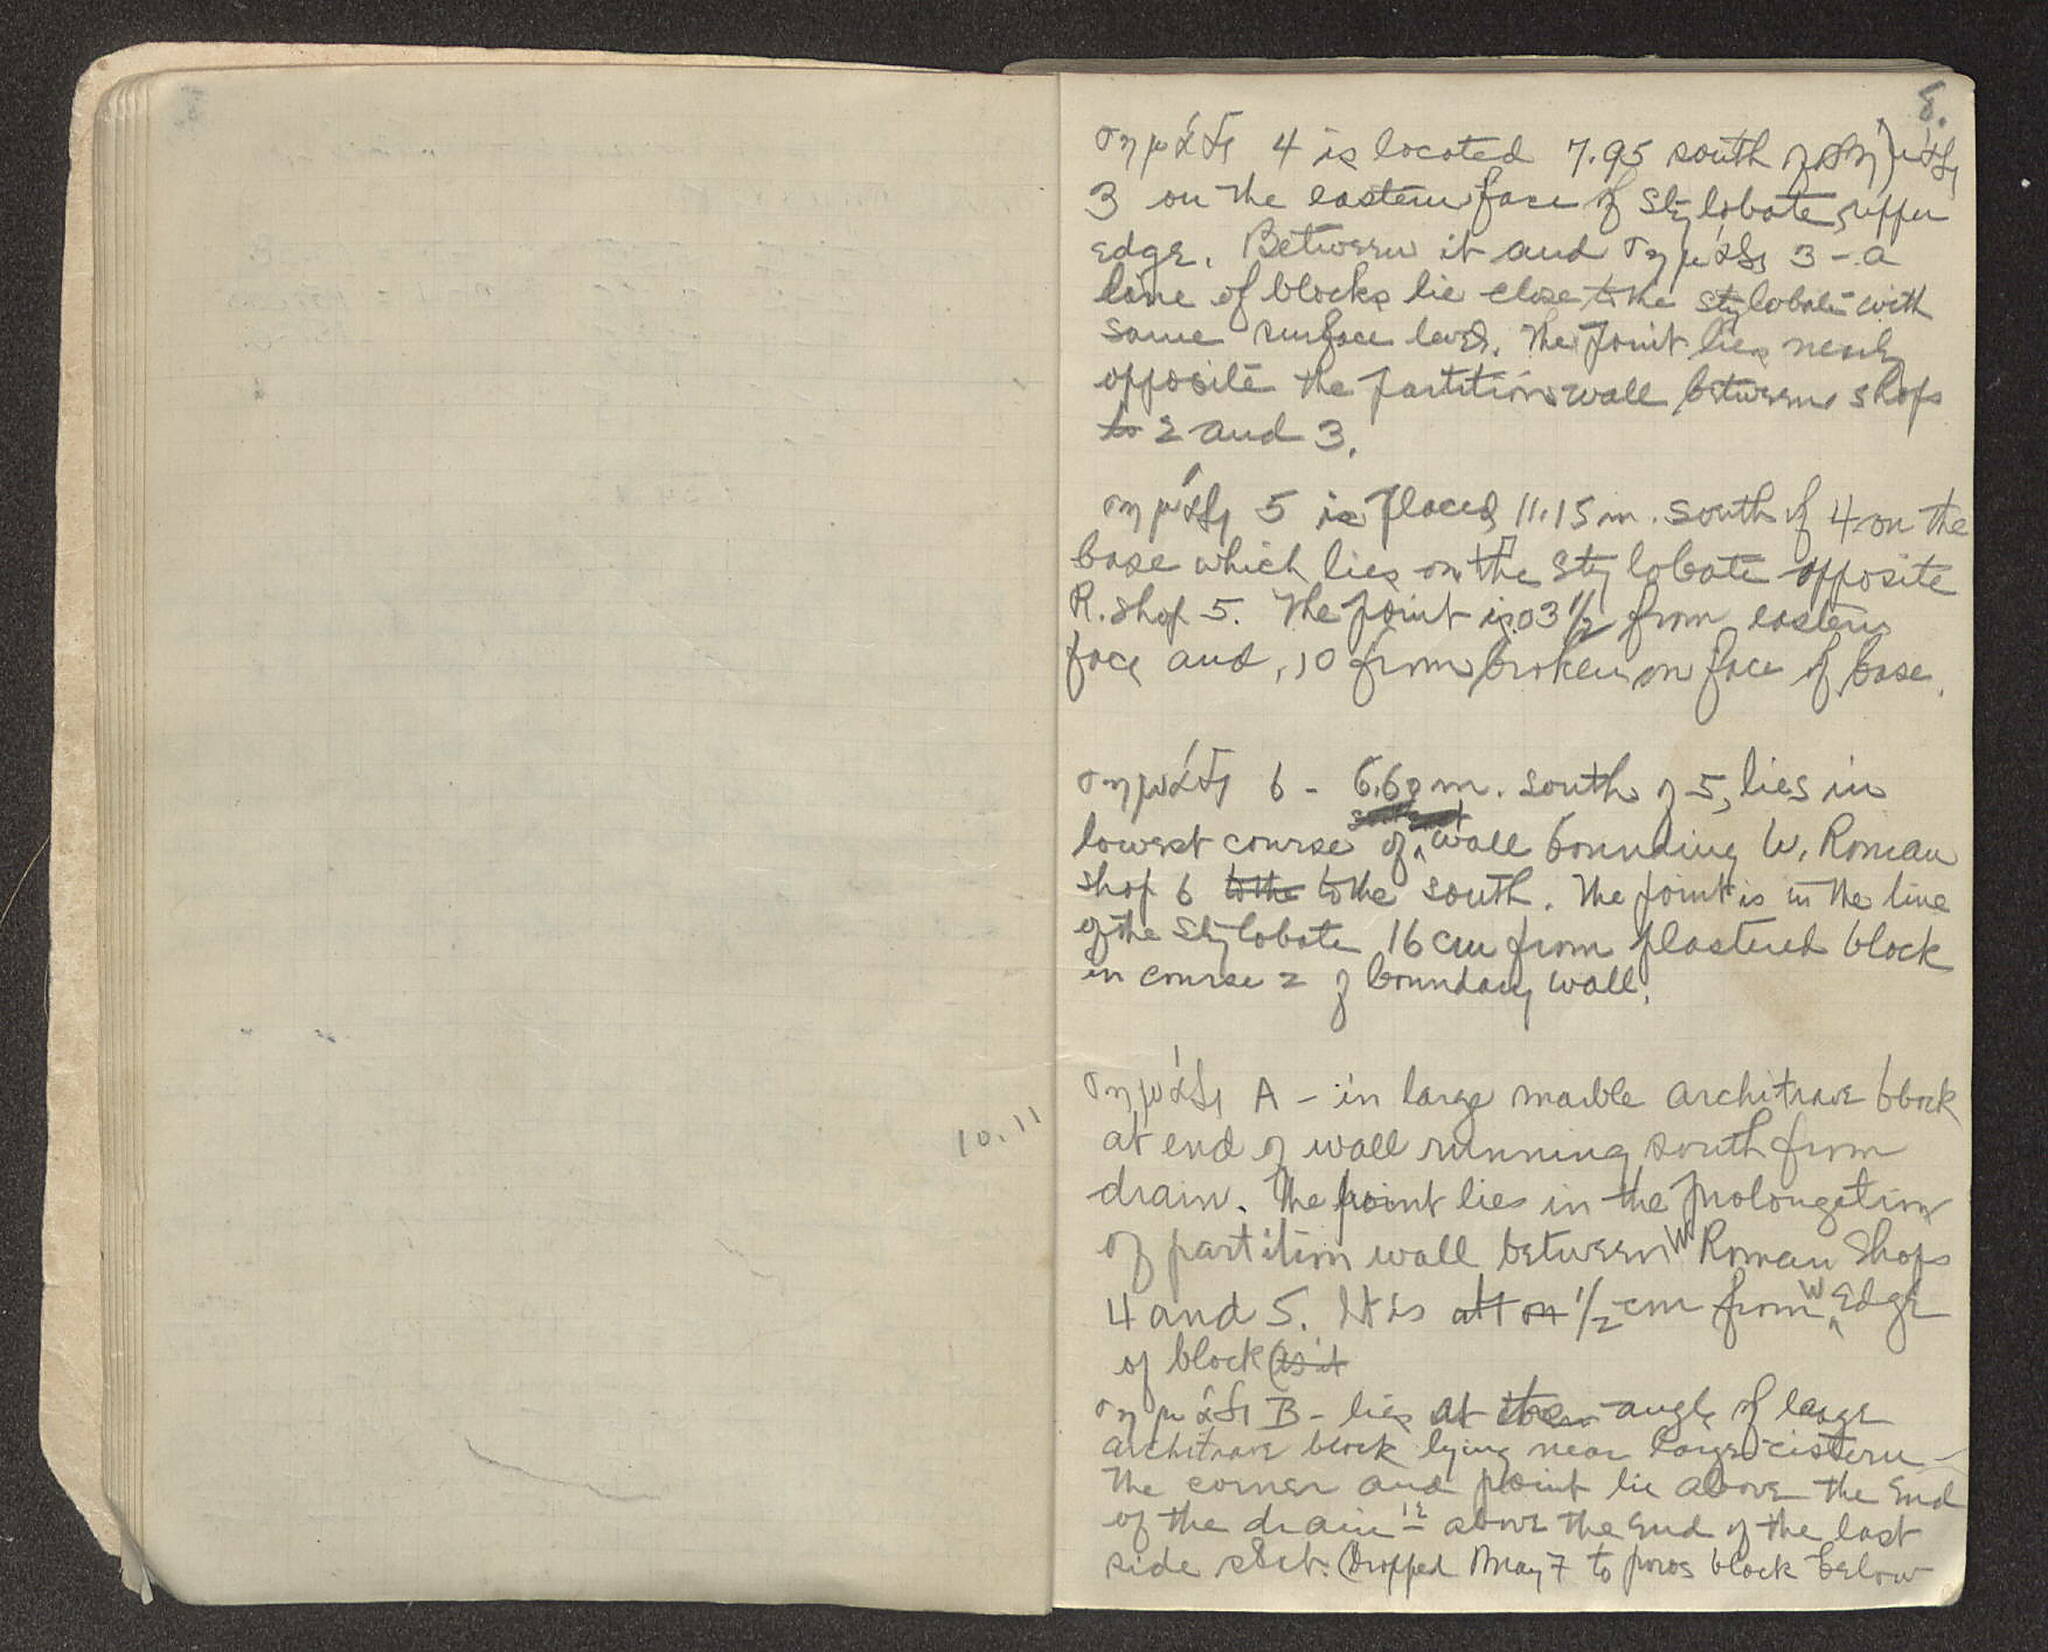 10.11
8.
σημάδι 4 is located 7.95 south of σημάδι
3 on the eastern face of stylobate, upper
edge. Between it and σημάδι 3 - a
line of blocks lie close to the stylobate with
same surface level. The point lies nearly
opposite the partition wall between shops
to 2 and 3.
σημάδι 5 is placed 11.15 m. south of 4 on the
base which lies on the stylobate opposite
R. shop 5. The point is .03 1/2 from eastern
face and .10 from broken face of base.
σημάδι 6 - 6.60 m. south of 5, lies in
lowest course of wall bounding W. Roman
shop 6 to the to the south. The point is in the line
of the stylobate 16 cm from plastered block
in course 2 of boundary wall.
σημάδι A - in large marble architrave block
at end of wall running south from
drain. The point lies in the prolongation
of partition wall between W Roman Shops
4 and 5. It is 1/2 cm from W edge
of block (as it
σημάδι B - lies at angle of large
architrave block lying near large cistern -
The corner and point lie above the end
of the drain i.e. above the end of the last
side slab. (Dropped May 7 to poros block below